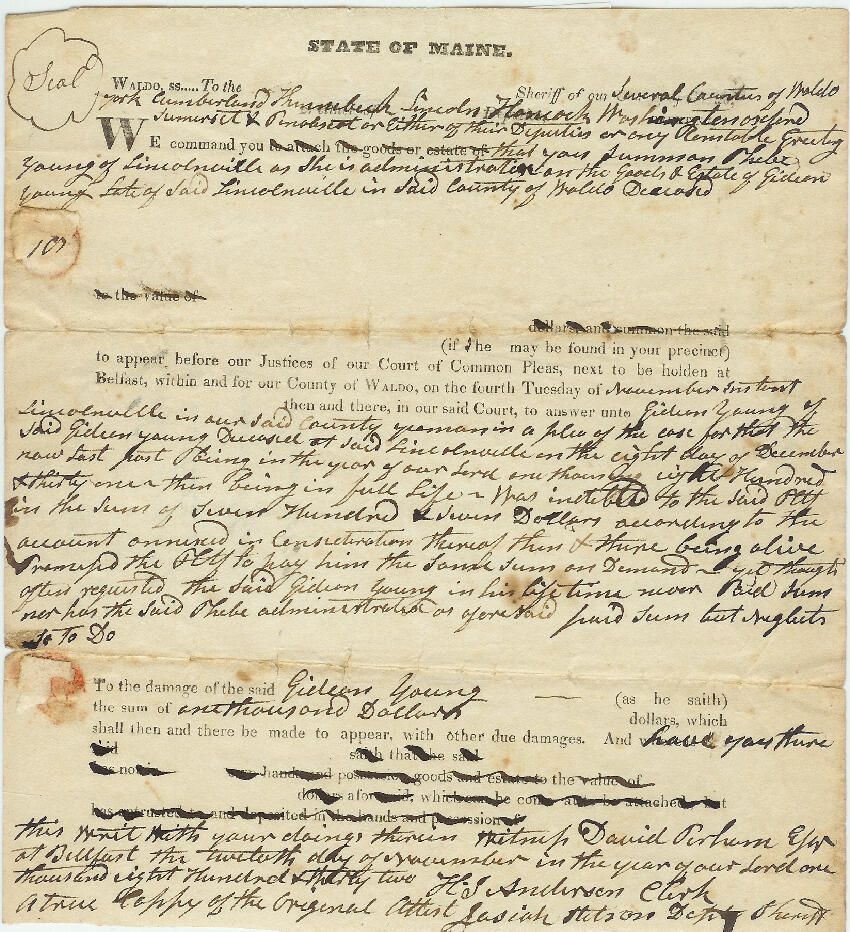 STATE OF MAINE.
Seal
WALDO, ss.....To the Sheriff of our Several Counties of Waldo
York Cumberland Kennebeck Lincoln Hancock Washington oxford
Somerset & Penobscot or Either of their Deputies or any Constable Greeting
WE command you to attach the goods or estate of that you Summon Phebe
Young of Lincolnville as She is administratrix on the Goods & Estate of Gideon
Young Late of Said Lincolnville in Said County of Waldo Deceased
to the value of
dollars, and summon the said
(if she may be found in your precinct)
to appear before our Justices of our Court of Common Pleas, next to be holden at
Belfast, within and for our County of WALDO, on the fourth Tuesday of November Instant
then and there, in our said Court, to answer unto Gideon Young of
Lincolnville in our said County yeoman in a plea of the case for that the
said Gideon young Deceased at said Lincolnville on the eight day of December
now last past Being in the year of our Lord one thousand eight Hundred
& thirty one ~ then being in full Life ~ Was indebted to the said Pltf
in the sum of Seven Hundred & Seven Dollars according to the
account annexed in Consideration thereof then & there being alive
Promised the Pltf to pay him the same sum on Demand ~ yet though
often requested the said Gideon Young in his life time never Paid sum
nor has the said Phebe administratrix as afore said paid sum but neglects
so to Do
To the damage of the said Gideon Young (as he saith)
the sum of one thousand Dollars dollars, which
shall then and there be made to appear, with other due damages. And have you there
said saith that the said
has not in hands and possession goods and estate to the value of
dollars aforesaid, which can be come at to be attached but
has entrusted to and deposited in the hands and possession of
this writ with your doings therein Witness David Perham Esqr
at Belfast the twelth day of November in the year of our Lord one
thousand eight Hundred & thirty two H.J. Anderson Clerk
A true Coppy of the Original Attest Josiah Stetson Depty Sheriff